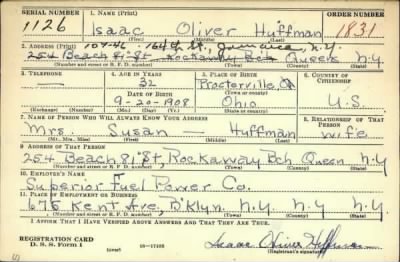 SERIAL NUMBER 1. NAME (Print) ORDER NUMBER
1126 Isaac Oliver Huffman 1831
(First) (Middle) (Last)
2. ADDRESS (Print) 109-46 164th St, Jamaica, N.Y.
254 Beach 81st St. Rockaway Bch Queens N.Y
(Number and street or R. F. D. number) (Town) (County) (State)
3. TELEPHONE 4. AGE IN YEARS 5. PLACE OF BIRTH 6. COUNTRY OF CITIZENSHIP
— 32 Procterville,
(Town or county)
DATE OF BIRTH
9-20-1908 Ohio U.S.
(Exchange) (Number) (Mo.) (Day) (Yr.) (State or country)
7. NAME OF PERSON WHO WILL ALWAYS KNOW YOUR ADDRESS 8. RELATIONSHIP OF THAT PERSON
Mrs. Susan — Huffman wife
(Mr., Mrs., Miss) (First) (Middle) (Last)
9. ADDRESS OF THAT PERSON
254 Beach 81st St, Rockaway Bch Queen N.Y
(Number and street or R. F. D. number) (Town) (County) (State)
10. EMPLOYER'S NAME
Superior Fuel Power Co.
11. PLACE OF EMPLOYMENT OR BUSINESS
675 Kent Ave, B'klyn. N.Y. N.Y N.Y
(Number and street or R. F. D. number) (Town) (County) (State)
I AFFIRM THAT I HAVE VERIFIED ABOVE ANSWERS AND THAT THEY ARE TRUE.
REGISTRATION CARD
D. S. S. FORM 1 (over) 16—17105 Isaac Oliver Huffman
(Registrant's signature)